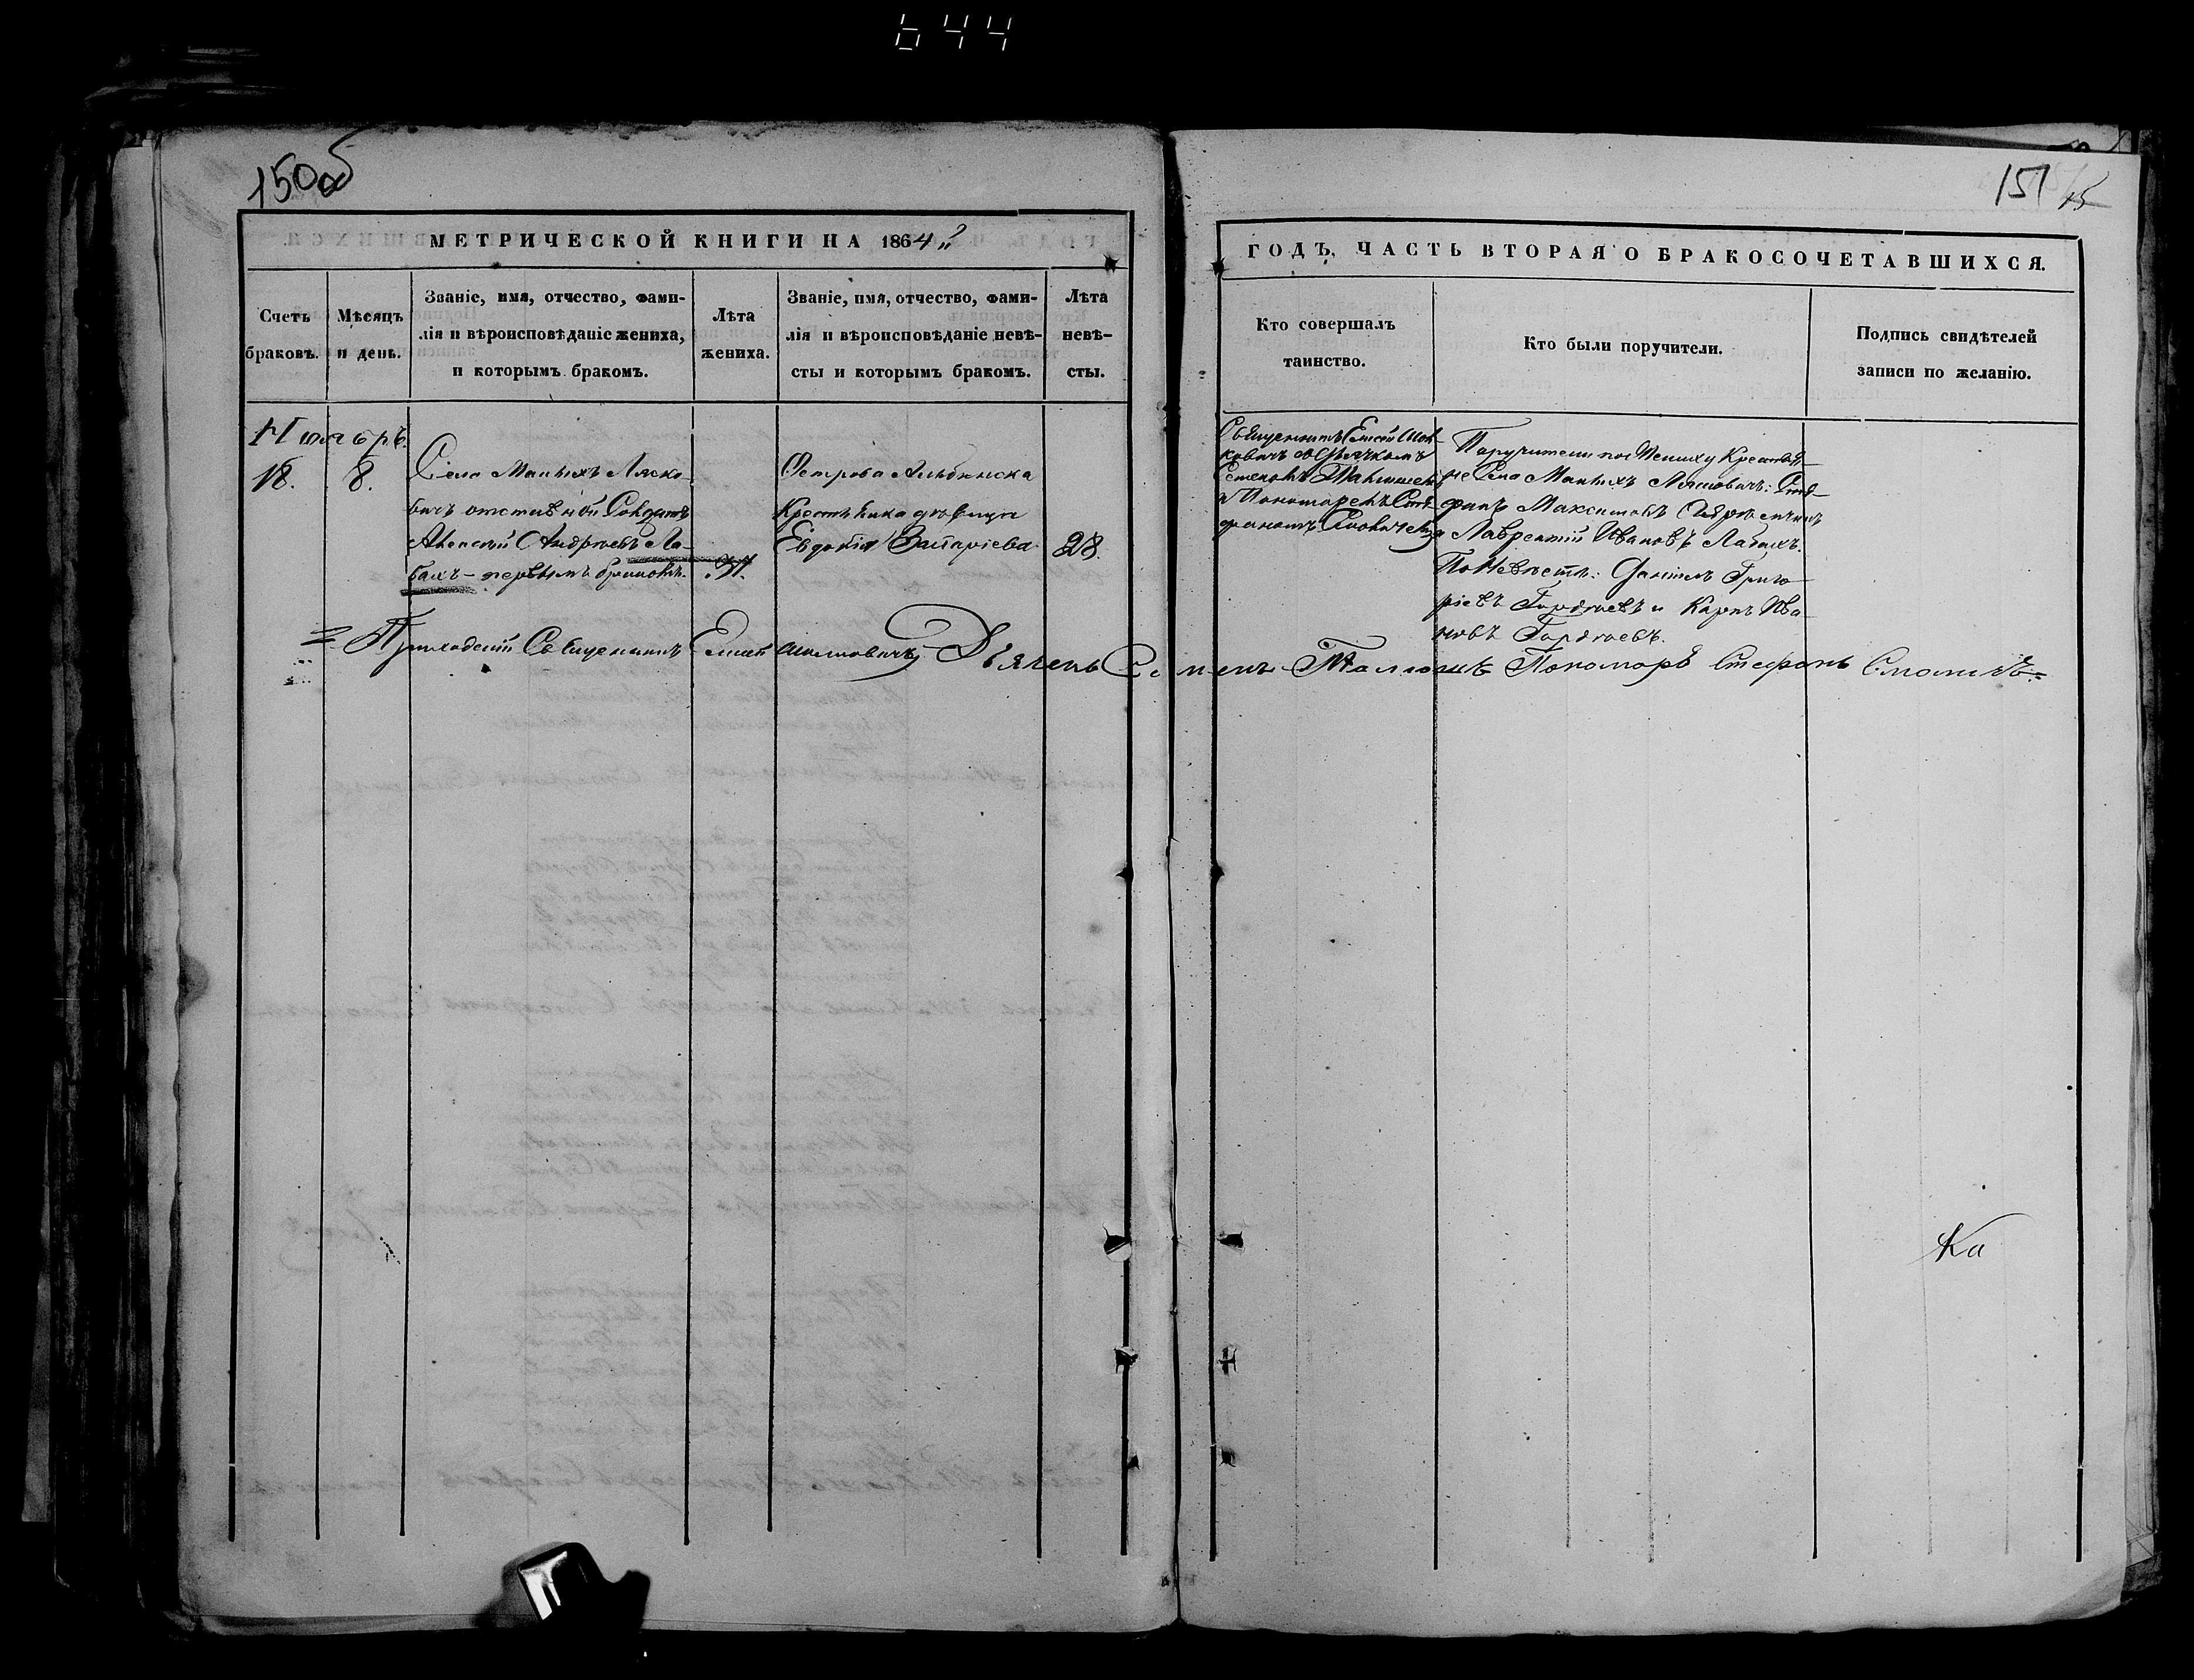 644
150об
МЕТРИЧЕСКОЙ КНИГИ НА 1864
Счетъ браковъ.
Мѣсяцъ и день.
Званіе, имя, отчество, фами-
лія и вѣроисповѣданіе жениха,
и которымъ бракомъ.
Лѣта жениха.
Званіе, имя, отчество, фами-
лія и вѣроисповѣданіе невѣ-
сты и которымъ бракомъ.
Лѣта невѣ-
сты.
Ноябрь
18.
8.
Села Малыхъ Ляско-
вичъ отставной Солдатъ
Андреевъ Ла-
бахъ – первымъ бракомъ.
31.
Острова
Крестьянка девица
Евдокія
28.
Приходскій Священникъ Елисей Дьячекъ Семенъ Пономарь Стефанъ
151
15
ГОДЪ, ЧАСТЬ ВТОРАЯ О БРАКОСОЧЕТАВШИХСЯ.
Кто совершалъ
таинство.
Кто были поручители.
Подпись свидѣтелей
записи по желанію.
Священникъ Елисей
съ Дьячкомъ
Семеномъ
и Пономаремъ Сте-
фаномъ
Поручители по Жениху Крестья-
не Села Малыхъ Лясковичъ: Сте-
фанъ Максимовъ
и Лаврентій Ивановъ Лабахъ.
По Невѣсте: Григо-
ріевъ Гордѣевъ и Карпъ Ива-
новъ Гордѣевъ.
Ка